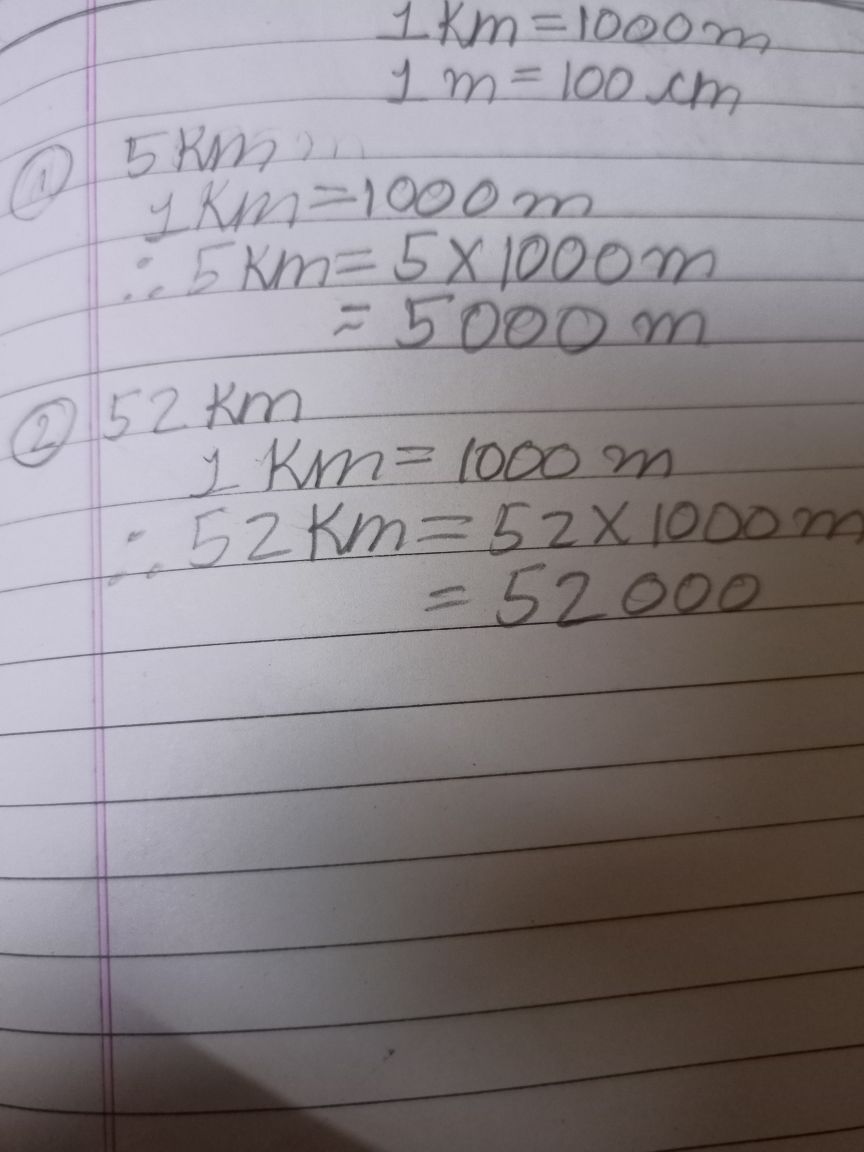 1 Km = 1000 m
1 m = 100 cm
① 5 Km
1 Km = 1000 m
∴ 5 Km = 5 × 1000 m
= 5000 m
② 52 Km
1 Km = 1000 m
∴ 52 Km = 52 × 1000 m
= 52000